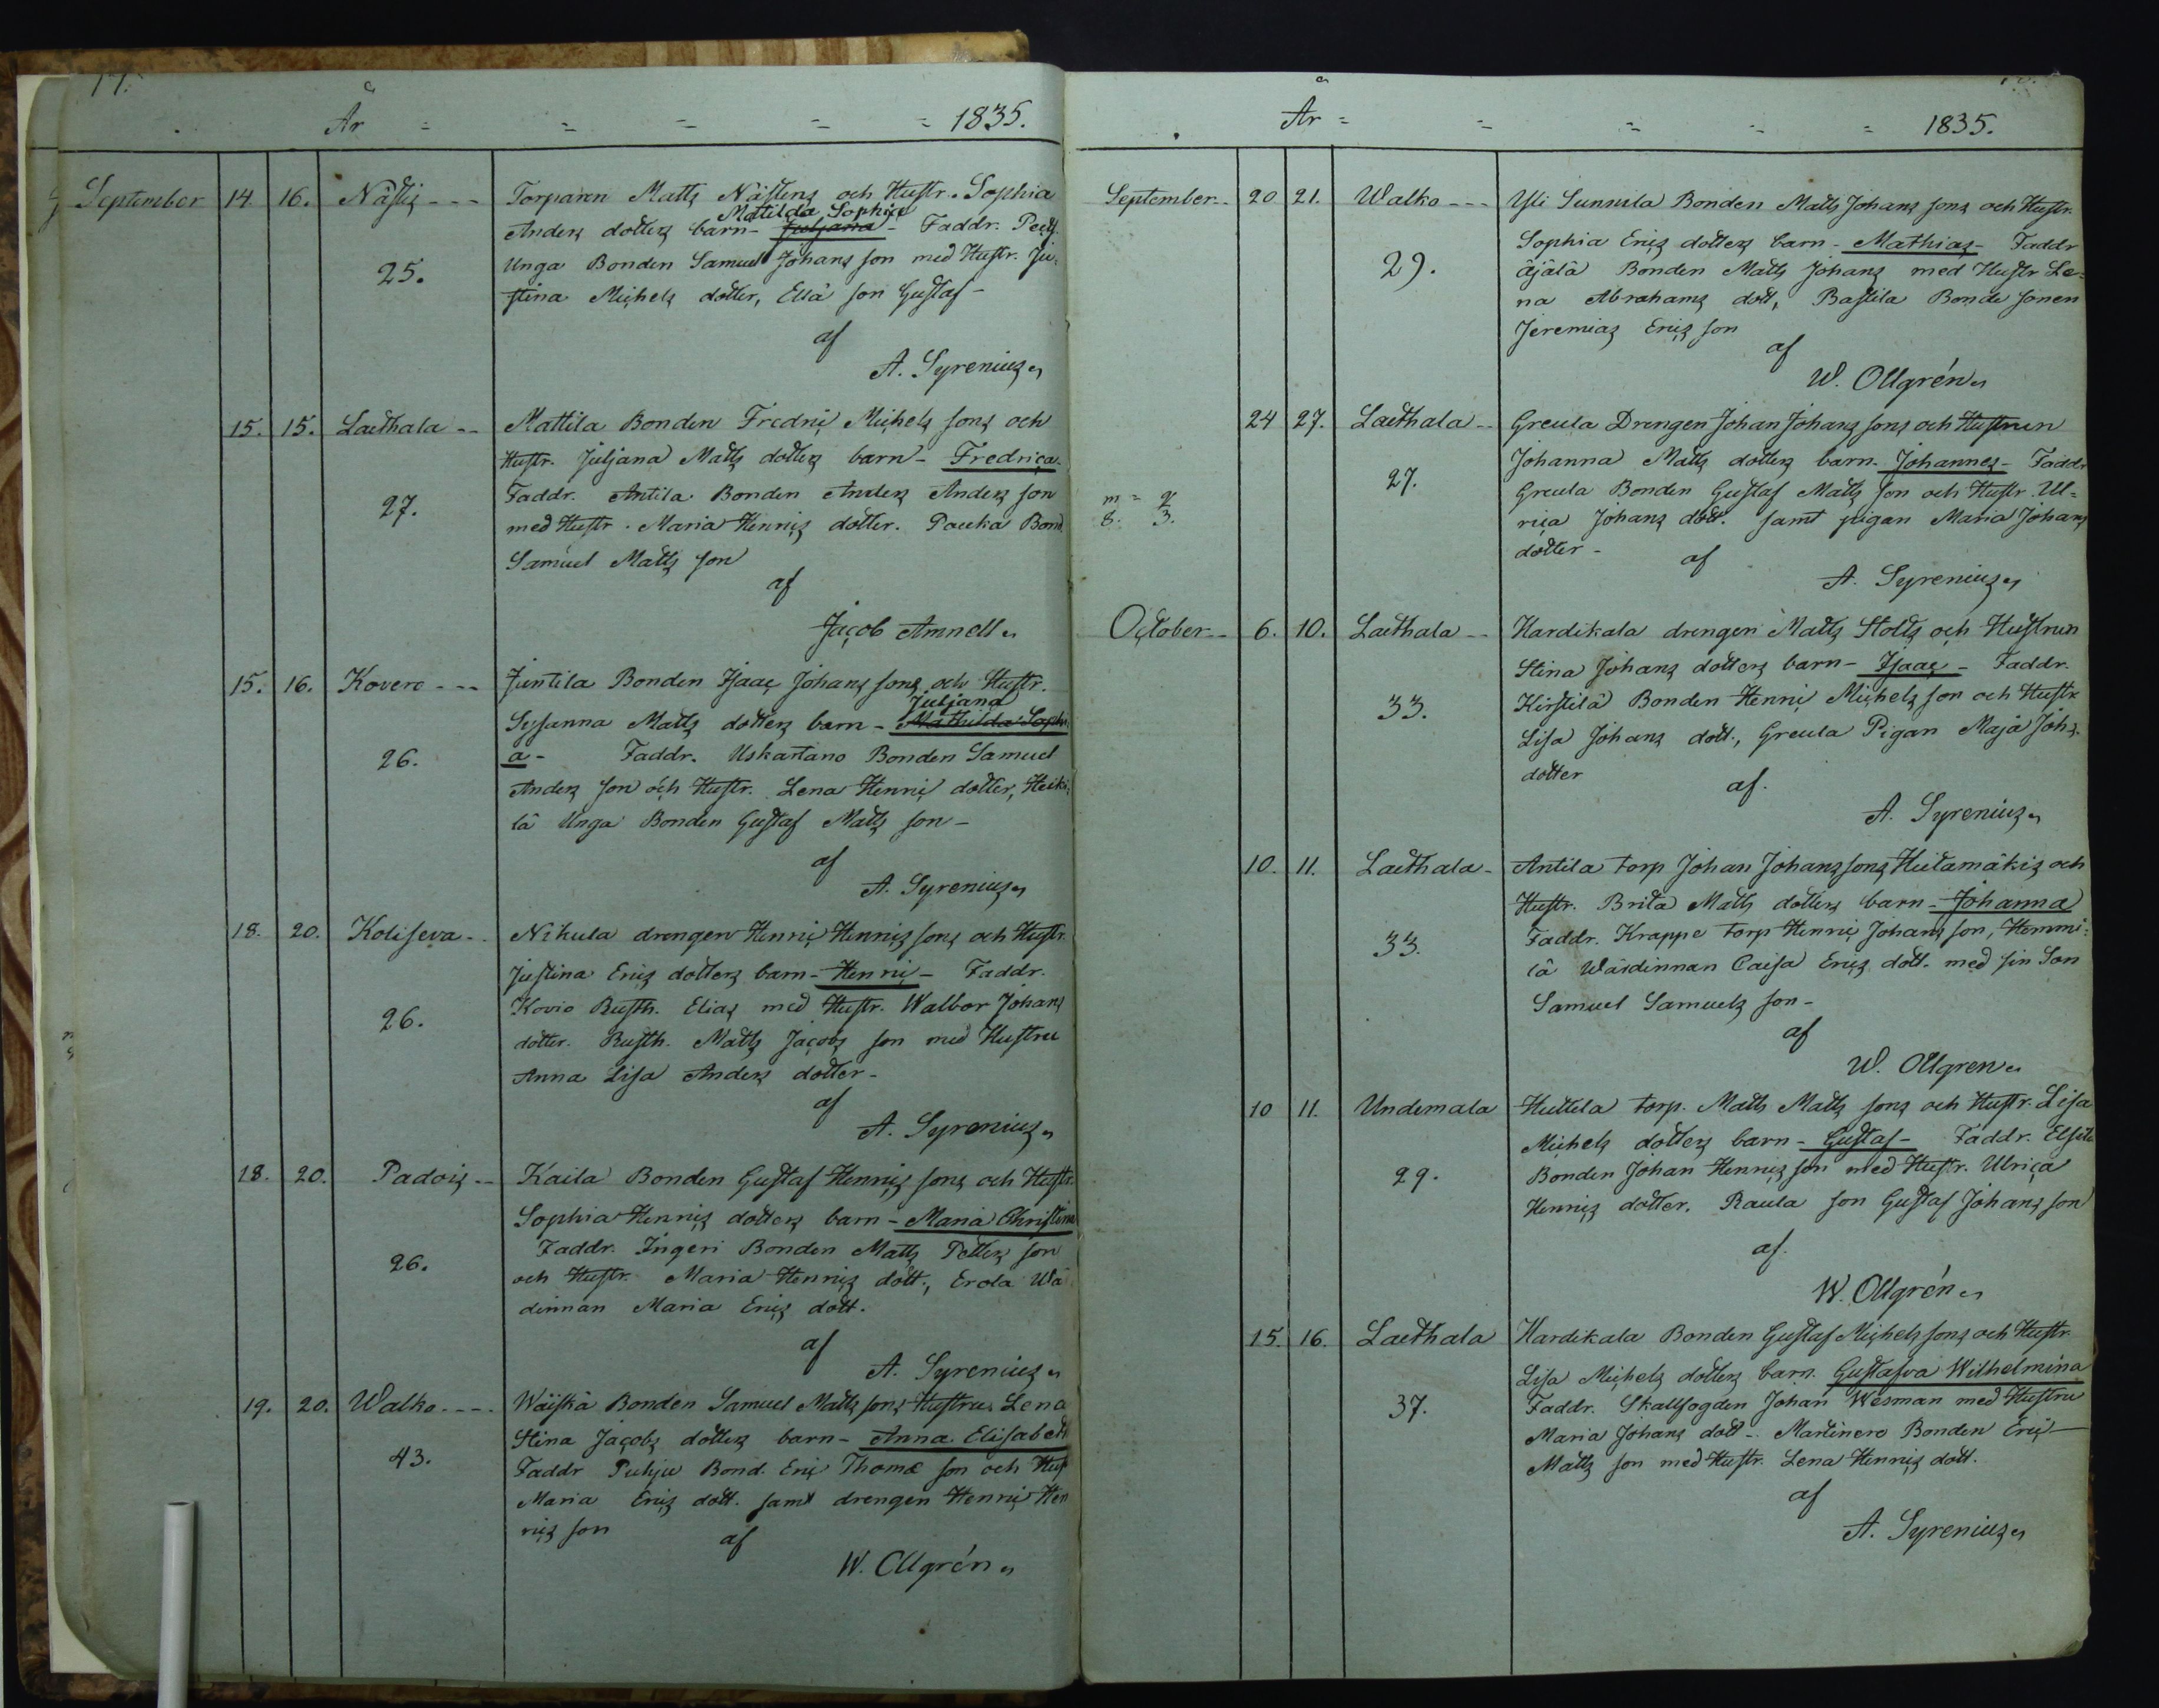 17.
År = = = = = 1835.
September 14. 16. Nästis - - - Torparen Matts Nästens och Hustr. Sophia
Matilda Sophia
Anders dotters barn - Juljana - Faddr.
25. Unga Bonden Samuel Johans son med Hustr. Ju-
stina Michels dotter, Ellä son Gustaf -
af
A. Syrenius
15. 15. Laethala - - Mattila Bonden Fredric Michels sons och
Hustr. Juljana Matts dotters barn - Fredrica -
27. Faddr. Antila Bonden Anders Anders son
med Hustr. Maria Henrics dotter. Pauka Bond.
Samuel Matts son
af
Jacob Amnell
15. 16. Kovero - - - Juntila Bonden Isaac Johans sons och Hustr.
Juljana
Susanna Matts dotters barn - Mathilda Sophi
26. a - Faddr. Uskartano Bonden Samuel
Anders son och Hustr. Lena Henric dotter, Heiki-
lä Unga Bonden Gustaf Matts son -
af
A. Syrenius
18. 20. Koliseva - - Nikula drengen Henric Henrics sons och Hustr.
Justina Erics dotters barn - Henric - Faddr.
26. Kovio Rusth. Elias med Hustr. Walbor Johans
dotter. Rusth. Matts Jacobs son med Hustru
Anna Lisa Anders dotter -
af
A. Syrenius
18. 20. Padois - - Kaila Bonden Gustaf Henrics sons och Hustr.
Sophia Henrics dotters barn - Maria Christina
26. Faddr. Ingeri Bonden Matts Petters son
och Hustr. Maria Henrics dott., Erola Wä
dinnan Maria Erics dott.
af
A. Syrenius
19. 20. Walko - - - - Wäiskä Bonden Samuel Matts sons Hustrus Lena
Stina Jacobs dotters barn - Anna Elisabeth
43. Faddr Puhju Bond. Eric Thomæ son och Hust
Maria Erics dott. samt drengen Henric Hen
rics son
af
W. Ollgrén
År = = = = = 1835.
September - - 20 21. Walko - - - Yli Sunnila Bonden Matts Johans sons och Hustr.
Sophia Erics dotters barn - Mathias - Faddr
29. äjälä Bonden Matts Johans med Hustr Le-
na Abrahams dott, Bastila Bonde sonen
Jeremias Erics son
af
W. Ollgrén
24 27. Laethala - - Greula Drengen Johan Johans sons och Hustrun
Johanna Matts dotters barn - Johannes - Faddr
27. Greula Bonden Gustaf Matts son och Hustr. Ul-
m = q
8. 3.
rica Johans dott. samt pigan Maria Johans
dotter -
af
A. Syrenius
October - - 6. 10. Laethala - - Kardikala drengen Matts Stolts och Hustrun
Stina Johans dotters barn - Isaac - Faddr.
33. Kirstilä Bonden Henric Michels son och Hustr
Lisa Johans dott., Greula Pigan Maja Johs.
dotter
af.
A. Syrenius
10. 11. Laethala - Antila torp Johan Johans sons Hietamäkis och
Hustr. Brita Matts dotters barn - Johanna
33. Faddr. Krappe torp Henric Johans son, Hemmi-
lä Wärdinnan Caisa Erics dott. med sin Son
Samuel Samuels son -
af
W. Ollgren
10 11. Undemala Huttila torp. Matts Matts sons och Hustr. Lisa
Michels dotters barn - Gustaf - Faddr. Elsilä
29. Bonden Johan Henrics son med Hustr. Ulrica
Henrics dotter. Raula son Gustaf Johans son
af.
W. Ollgrén
15. 16. Laethala Kardikala Bonden Gustaf Michels sons och Hustr.
Lisa Michels dotters barn. Gustafva Wilhelmina
37. Faddr. Skallfogden Johan Wesman med Hustru
Maria Johans dott - Martinero Bonden Eric
Matts son med Hustr. Lena Henrics dott.
af
A. Syrenius